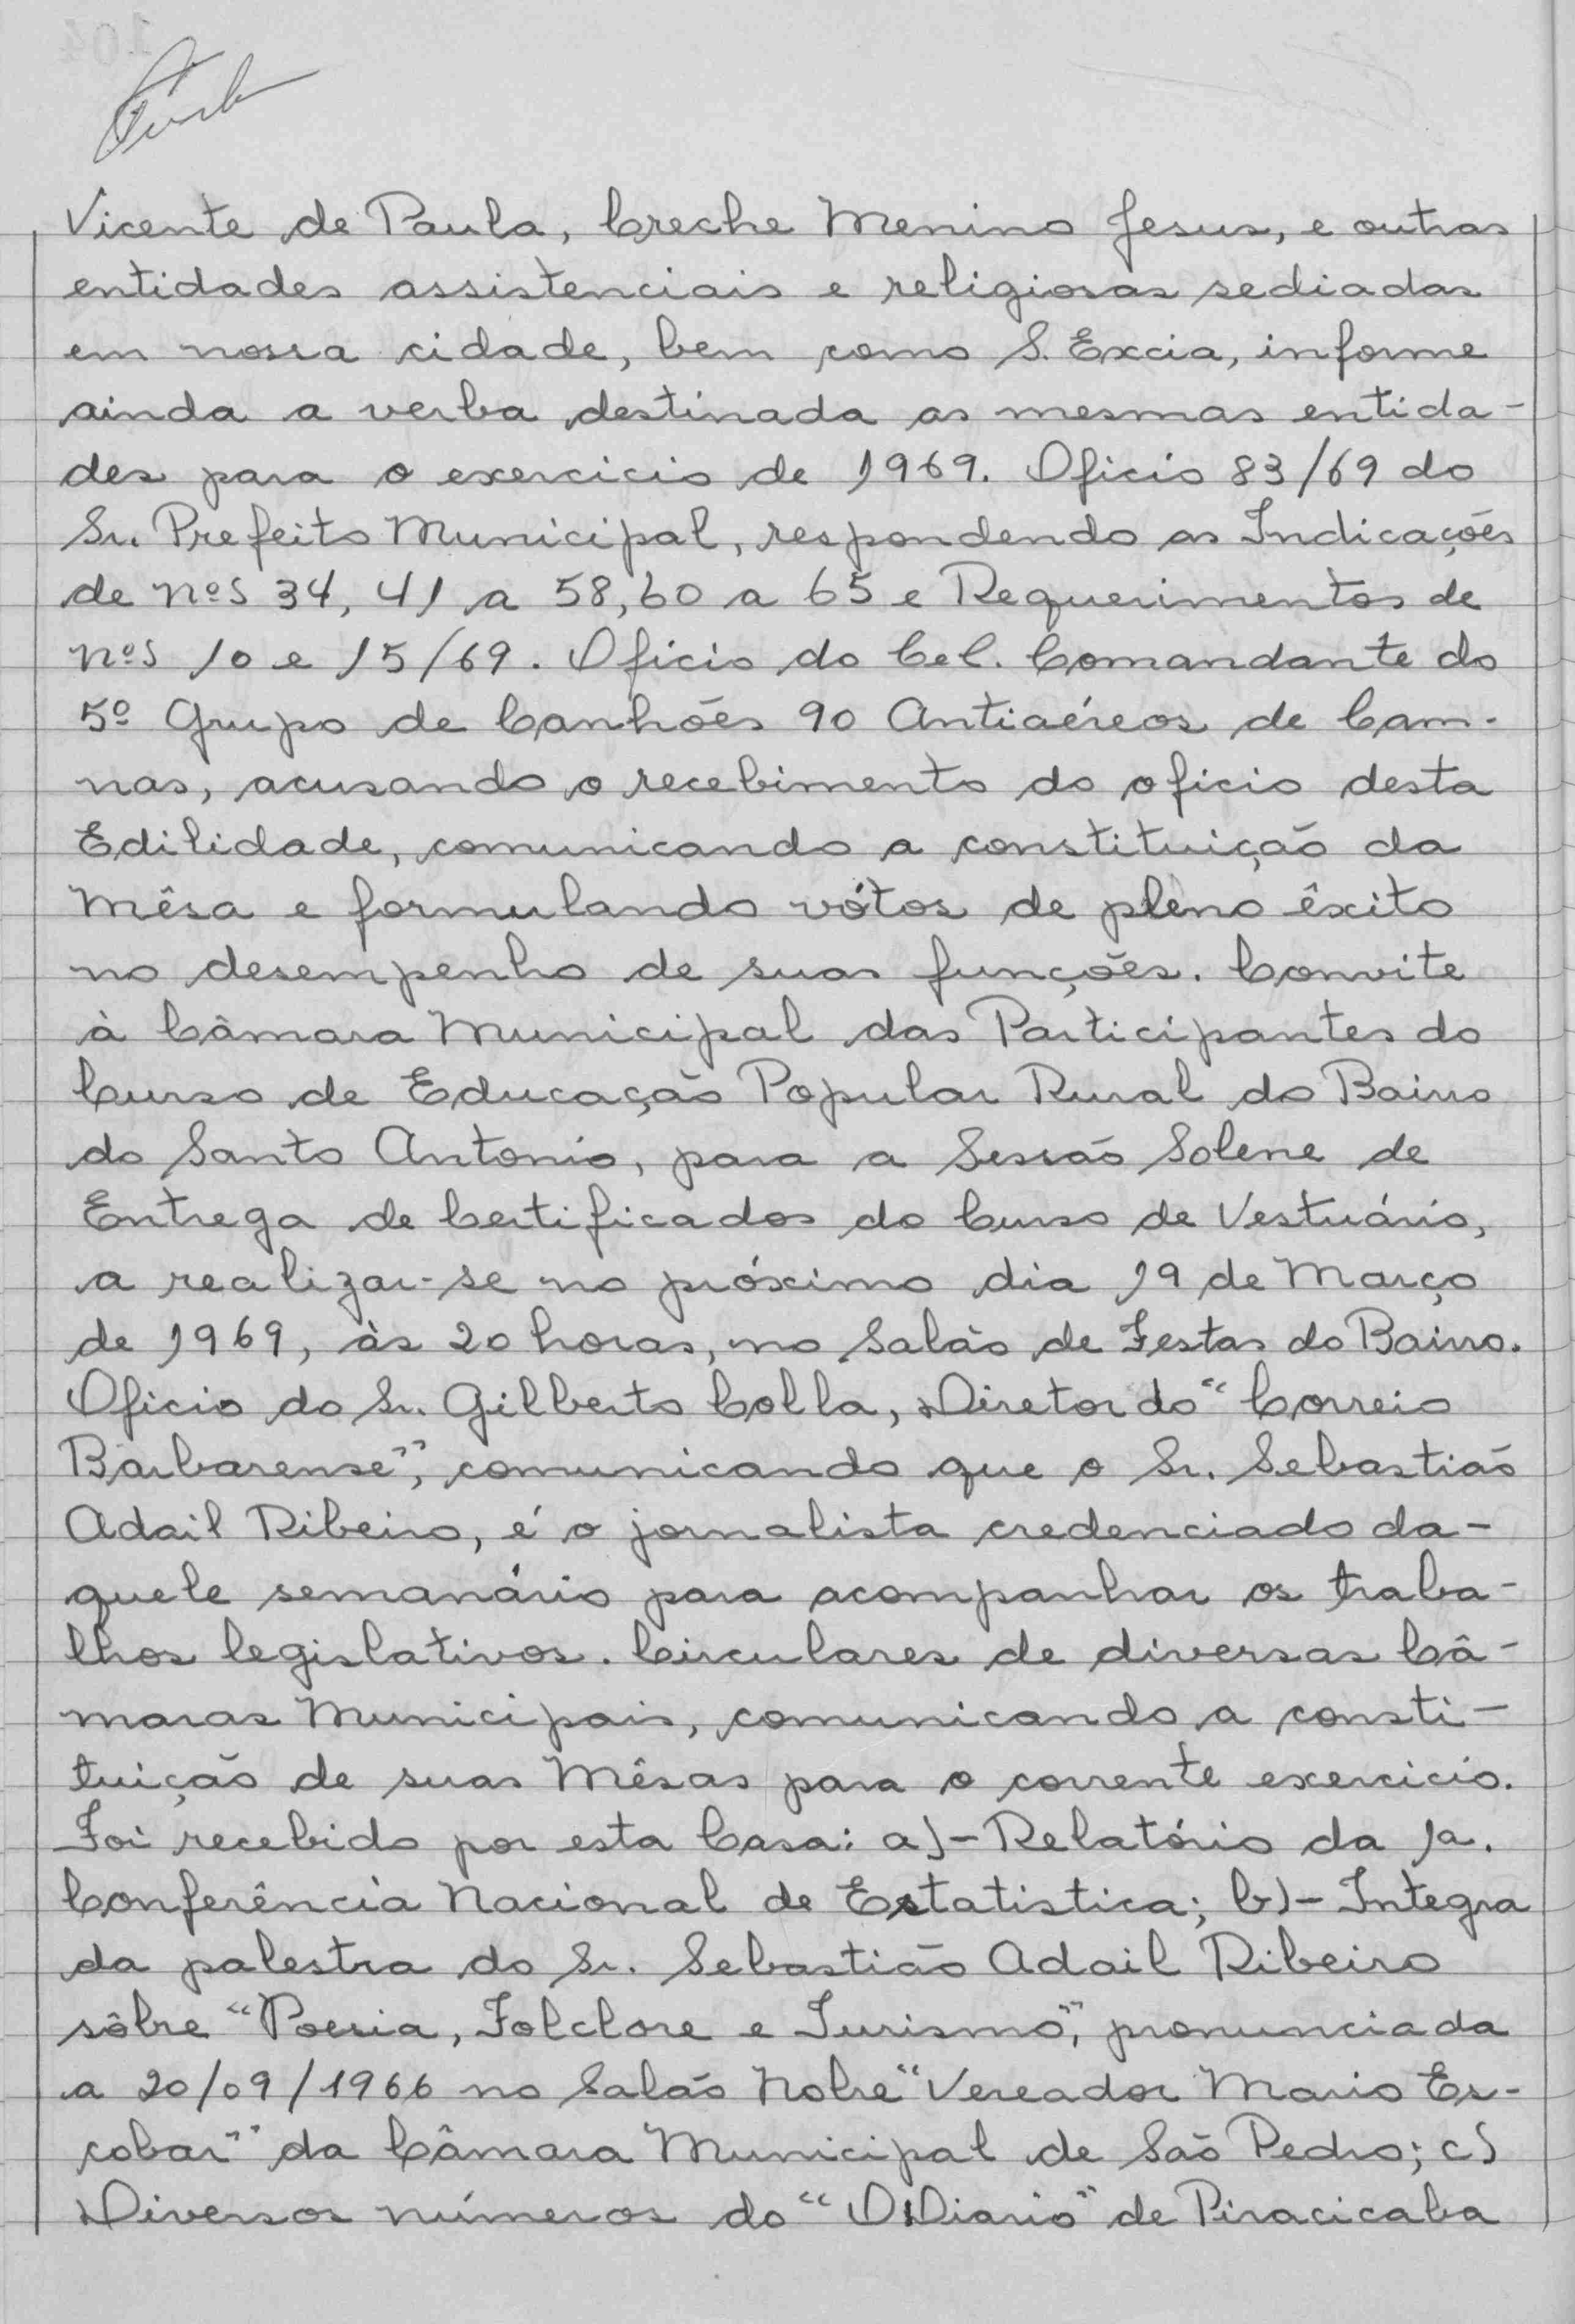 Vicente de Paula, Creche Menino Jesus, e outras
entidades assistenciais e religiosas sediadas
em nossa cidade, bem como S. Excia, informe
ainda a verba destinada as mesmas entida-
des para o exercicio de 1969. Oficio 83/69 do
Sr. Prefeito Municipal, respondendo as Indicações
de nºs 34, 41 a 58, 60 a 65 e Requerimentos de
nºs 10 e 15/69. Oficio do Cel. Comandante do
5º Grupo de Canhões 90 Antiaéreos de Cam-
nas, acusando o recebimento do oficio desta
Edilidade, comunicando a constituição da
Mêsa e formulando vótos de pleno êxito
no desempenho de suas funções. Convite
à Câmara Municipal das Participantes do
Curso de Educação Popular Rural do Bairro
do Santo Antonio, para a Sessão Solene de
Entrega de Certificados do Curso de Vestuário,
a realizar-se no próximo dia 19 de Março
de 1969, às 20 horas, no Salão de Festas do Bairro.
Oficio do Sr. Gilberto Colla, Diretor do "Correio
Barbarense", comunicando que o Sr. Sebastião
Adail Ribeiro, é o jornalista credenciado da-
quele semanário para acompanhar os traba-
lhos legislativos. Circulares de diversas Câ-
maras Municipais, comunicando a consti-
tuição de suas Mêsas para o corrente exercicio.
Foi recebido por esta Casa: a)- Relatório da 1a.
Conferência Nacional de Estatistica; b)- Integra
da palestra do Sr. Sebastião Adail Ribeiro
sôbre "Poesia, Folclore e Turismo", pronunciada
a 20/09/1966 no Salão Nobre "Vereador Mario Es-
cobar" da Câmara Municipal de São Pedro; c)
Diversos números do "O Diario" de Piracicaba